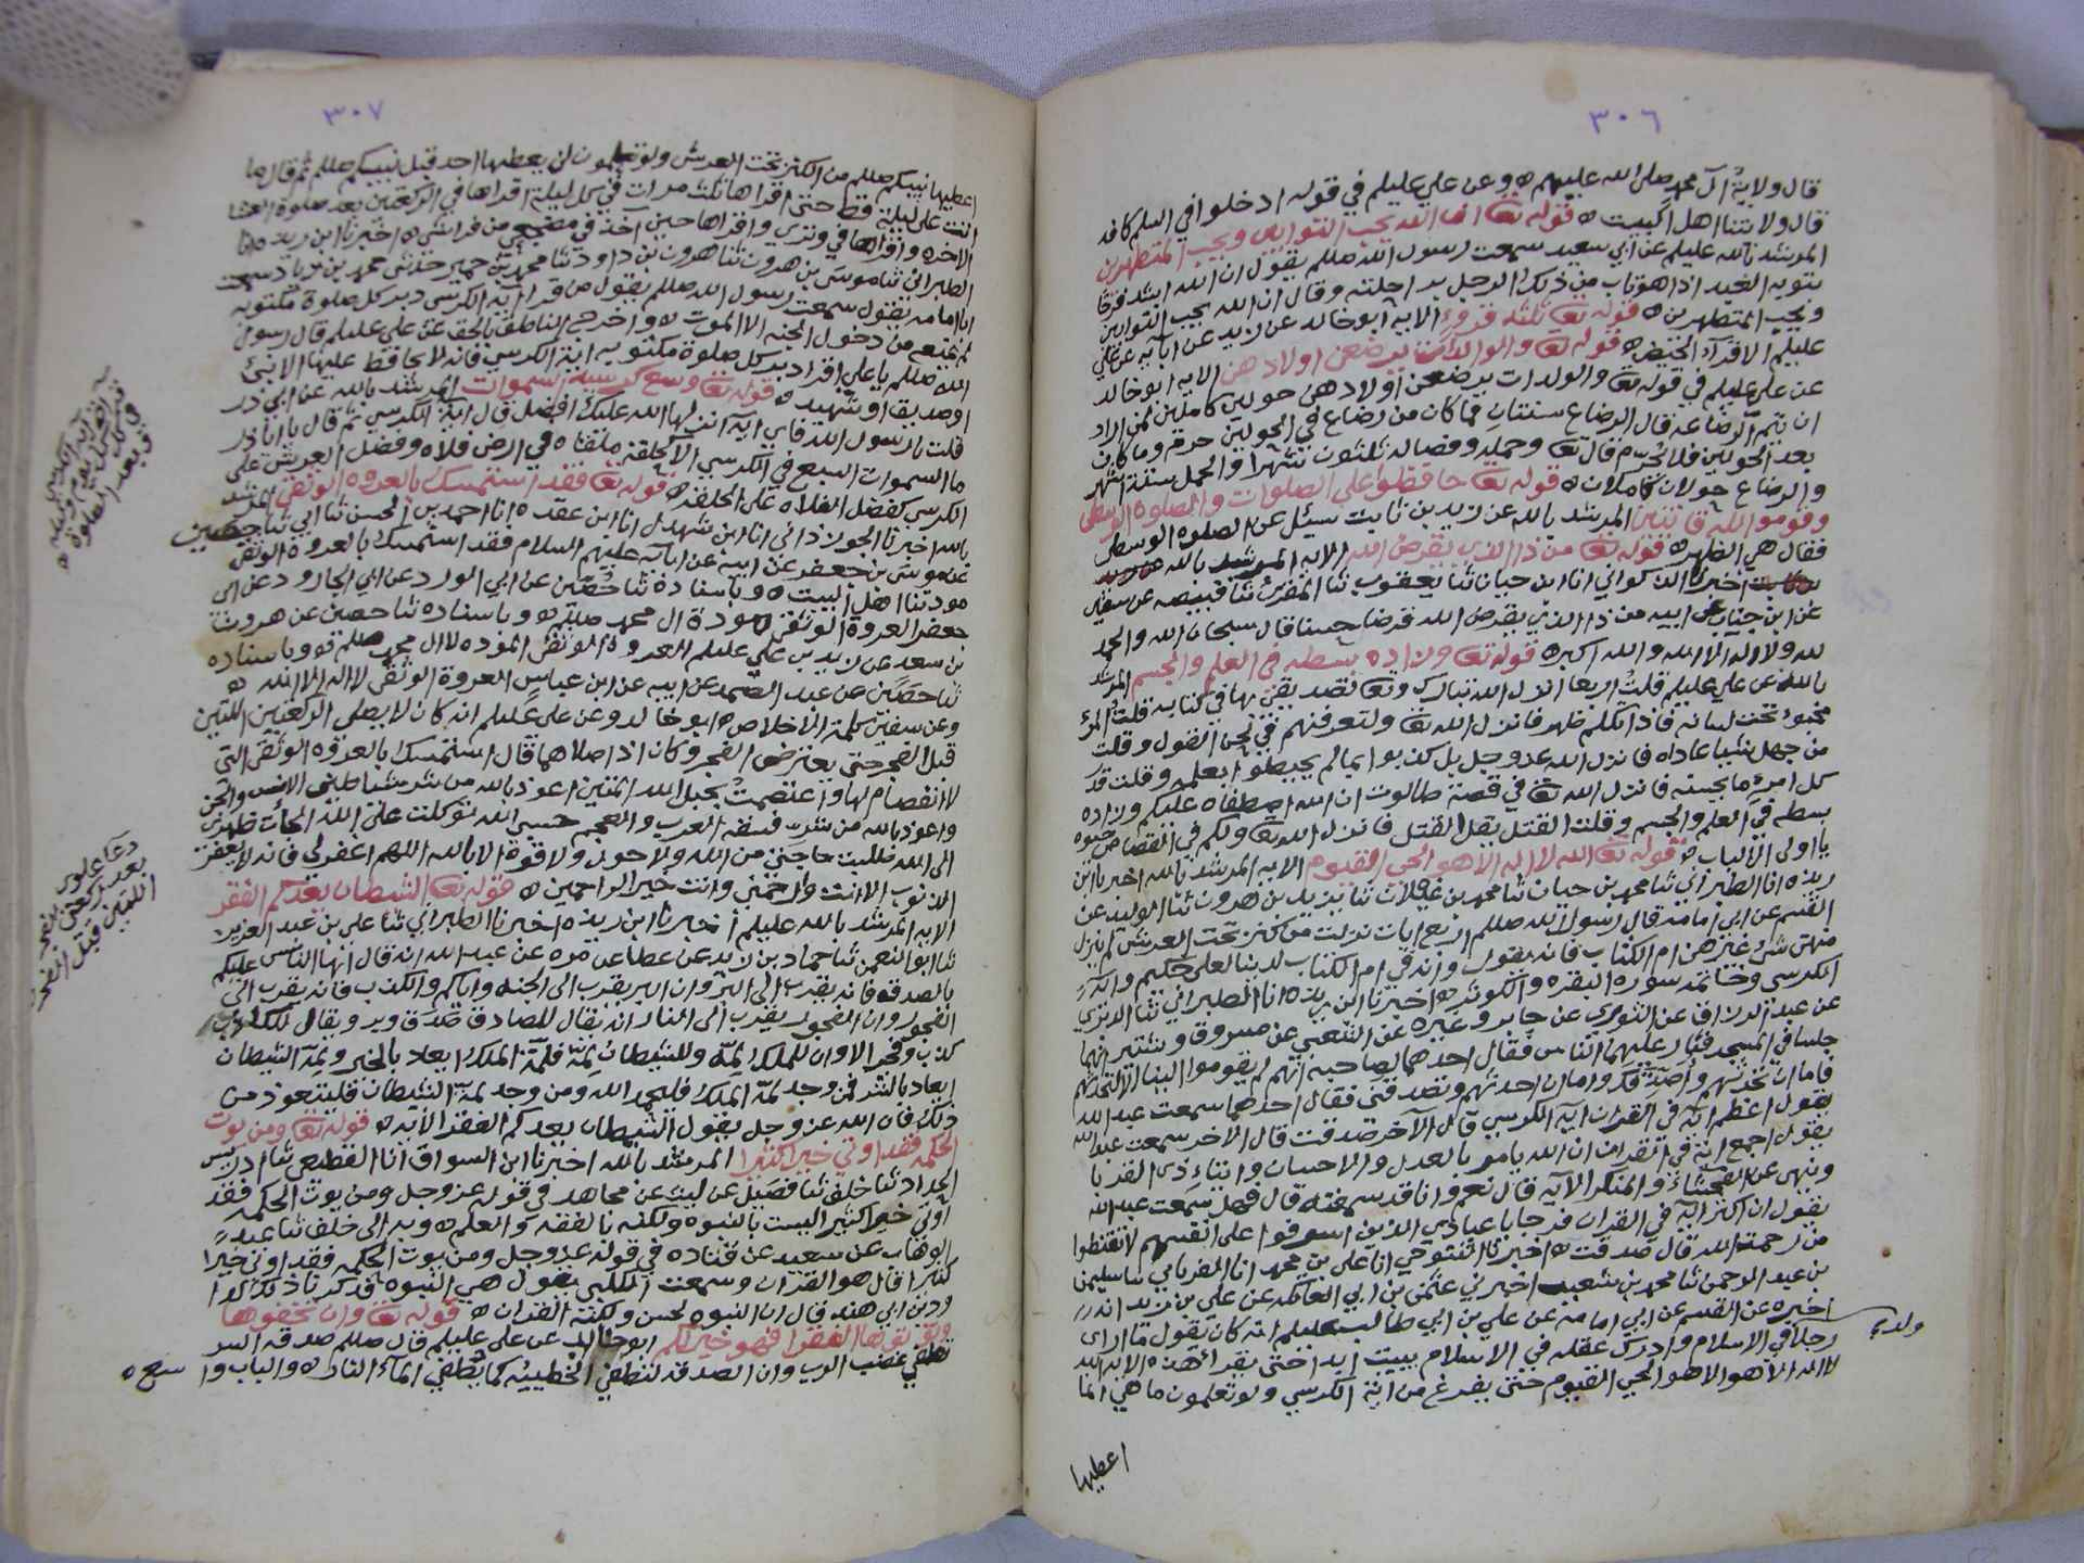 ٣٠٦
قال ولاية آل محمد صلى الله عليهم ه وعن علي عليلم في قوله ادخلوا في السلم كافه
قال ولايتنا اهل البيت ه قوله تعا ان الله يحب التوابين ويحب المتطهرين
المرشد بالله عليلم عن ابي سعيد سمعت رسول الله صللم يقول ان الله اشد فرحًا
بتوبه العبد اذا هو تاب من ذلك الرجل براحلته وقال ان الله يحب التوابين
ويحب المتطهرين ه قوله تعا ثلثه قروء الايه ابو خالد عن زيد عن ابايه عن علي
عليلم الاقرآء الحيض ه قوله تعا والوالدات يرضعن اولادهن الايه ابو خالد
عن علي عليلم في قوله تعا والولدات يرضعن اولادهن حولين كاملين لمن اراد
ان يتم الرضاعه قال الرضاع سنتان فما كان من رضاع في الحولين حرم وما كان
بعد الحولين فلا يحرم قال تعا وحمله وفصاله ثلثون شهرا والحمل ستة اشهر
والرضاع حولان كاملان ه قوله تعا حافظوا على الصلوات والصلوه الوسطى
وقوموا لله قانتين المرشد بالله عن زيد بن ثابت سئل عن الصلوه الوسطى
فقال هي الظهر ه قوله تعا من ذا الذي يقرض الله الايه المرشد بالله
اخبرنا الذكواني انا ابن حيان ثنا يعقوب ثنا المقرئ ثنا قبيصه عن سفين
عن ابن حيان عن ابيه من ذا الذي يقرض الله قرضا حسنا قال سبحان الله والحمد
لله ولا اله الا الله والله اكبر ه قوله تعا وزاده بسطه في العلم والجسم المرشد
بالله عن علي عليلم قلت اربعا انزل الله تبارك وتعا تصديقي بها في كتابه قلت المرء
مخبؤ تحت لسانه فاذا تكلم ظهر فانزل الله تعا ولتعرفنهم في لحن القول وقلت
من جهل شيا عاداه فانزل الله عز وجل بل كذبوا بما لم يحيطوا بعلمه وقلت قدر
كل امرء ما يحسنه فانزل الله تعا في قصة طالوت ان الله اصطفاه عليكم وزاده
بسطه في العلم والجسم وقلت القتل يقل القتل فانزل الله تعا ولكم في القصاص حيوه
يا اولى الالباب ه قوله تعا الله لا اله الا هو الحي القيوم الايه المرشد بالله اخبرنا ابن
ريذه انا الطبراني ثنا محمد بن حيان ثنا محمد بن غيلان ثنا يزيد بن هرون ثنا الوليد عن
القسم عن ابي امامه قال رسول الله صللم اربع ايات نزلت من كنز تحت العرش لم ينزل
منهن شئ غيرهن ام الكتاب فانه يقول وانه في ام الكتاب لدينا لعلي حكيم وايه
الكرسي وخاتمه سوره البقره والكوثر ه اخبرنا ابن ريذه انا الطبراني ثنا الدبري
عن عبد الرزاق عن الثوري عن جابر وغيره عن الشعبي عن مسروق وشتير انهما
جلسا في المسجد فثار عليهما الناس فقال احدهما لصاحبه انهم لم يقوموا الينا الا لتحدثهم
فاما ان تحدثهم واصدقك واما ان احدثهم وتصدقني فقال احدهما سمعت عبد الله
يقول اعظم ايه في القران ايه الكرسي قال الآخر صدقت قال الاخر سمعت عبد الله
يقول اجمع ايه في القران ان الله يامر بالعدل والاحسان وايتاء ذي القربا
وينهى عن الفحشاء والمنكر الايه قال نعم وانا قد سمعته قال فهل سمعت عبد الله
يقول ان اكثر ايه في القران فرجا يا عبادي الذين اسرفوا على انفسهم لا تقنطوا
من رحمة الله قال صدقت ه اخبرنا التنوخي انا علي بن محمد انا الفريابي سا سليمن
بن عبد الرحمن ثنا محمد بن شعيب اخبرني عثمن بن ابي العاتكه عن علي بن يزيد انه
اخبره عن القسم عن ابي امامه عن علي بن ابي طالب عليلم انه كان يقول ما ارى
رجلا في الاسلام وادرك عقله في الاسلام يبيت ابدا حتى يقرا هذه الايه الله
لا اله الا هو الحي القيوم حتى يفرغ من اية الكرسي ولو تعلمون ما هي انما
ولد في
اعطيها
٣٠٧
اعطيها نبيكم صللم من الكنز تحت العرش ولو تعلمون لن يعطيها احد قبل نبيكم صللم ثم قال ما
اتت علي ليلة قط حتى اقراها ثلث مرات في كل ليلة اقراها في الركعتين بعد صلوة العشا
الاخره واقراها في وتري واقراها حين آخذ في مضجعي من فراشي ه اخبرنا ابن ريذه انا
الطبراني ثنا موسى بن هرون ثنا هرون بن داود ثنا محمد بن حمير حدثني محمد بن زياد سمعت
ابا امامه يقول سمعت رسول الله صللم يقول من قرا آية الكرسي دبر كل صلوة مكتوبه
لم يمنعه من دخول الجنه الا الموت ه واخرج الناطق بالحق عن علي عليلم قال رسول
الله صللم يا علي اقرا دبر كل صلوة مكتوبه اية الكرسي فانه لا يحافظ عليها الا نبي
او صديق او شهيد ه قوله تعا وسع كرسيه السموات المرشد بالله عن ابي ذر
قلت يا رسول الله فاي ايه انزلها الله عليك افضل قال اية الكرسي ثم قال يا ابا ذر
ما السموات السبع في الكرسي الا كحلقه ملقاه في ارض فلاه وفضل العرش على
الكرسي كفضل الفلاه على الحلقه ه قوله تعا فقد استمسك بالعروه الوثقى المرشد
بالله اخبرنا الجوزذاني انا ابن شهدل انا ابن عقده انا احمد بن الحسن ثنا ابي ثنا حصين
عن موسى بن جعفر عن ابيه عن ابائه عليهم السلام فقد استمسك بالعروة الوثقى
مودتنا اهل البيت ه وباسناده ثنا حصين عن ابي الورد عن ابي الجارود عن ابي
جعفر العروة الوثقى مودة ال محمد صللم ه وباسناده ثنا حصين عن هرون
بن سعد عن زيد بن علي عليلم العروة الوثقى الموده لاال محمد صللم وباسناده
ثنا حصين عن عبد الصمد عن ابيه عن ابن عباس العروة الوثقى لا اله الا الله ه
وعن سفين كلمة الاخلاص ه ابو خالد وعن علي عليلم انه كان لا يصلي الركعتين اللتين
قبل الفجر حتى يعترض الفجر وكان اذا صلاهما قال استمسك بالعروه الوثقى التي
لا انفصام لها واعتصمت بحبل الله المتين اعوذ بالله من شر شياطين الانس والجن
واعوذ بالله من شر فسقه العرب والعجم حسبي الله توكلت على الله الجات ظهري
الى الله طلبت حاجتي من الله ولا حول ولا قوة الا بالله اللهم اغفر لي فانه لا يغفر
الذنوب الا انت وارحمني وانت خير الراحمين ه قوله تعا الشيطان يعدكم الفقر
الايه المرشد بالله عليلم اخبرنا ابن ريذه اخبرنا الطبراني ثنا علي بن عبد العزيز
ثنا ابو النعمن ثنا حماد بن زيد عن عطا عن مره عن عبد الله انه قال ايها الناس عليكم
بالصدق فانه يقرب الى البر وان البر يقرب الى الجنه واياكم والكذب فانه يقرب الى
الفجور وان الفجور يقرب الى النار انه يقال للصادق صدق وبر ويقال للكاذب
كذب وفجر الا وان للملك لمة وللشيطان لمة فلمة الملك ايعاد بالخير ولمة الشيطان
ايعاد بالشر فمن وجد لمة الملك فليحمد الله ومن وجد لمة الشيطان فليتعوذ من
ذلك فان الله عز وجل يقول الشيطان يعدكم الفقر الايه ه قوله تعا ومن يوت
الحكمه فقد اوتي خيرا كثيرا المرشد بالله اخبرنا ابن السواق انا القطيعي ثنا ادريس
الحداد ثنا خلف ثنا فضيل عن ليث عن مجاهد في قوله عز وجل ومن يوت الحكمه فقد
اوتي خيرا كثيرا ليست بالنبوه ولكنه بالفقه والعلم ه وبه الى خلف ثنا عبد
الوهاب عن سعيد عن قتاده في قوله عز وجل ومن يوت الحكمه فقد اوتي خيرا
كثيرا قال هو القران وسمعت الكلبي يقول هي النبوه فذكرنا ذلك لداود
بن ابي هند قال ان النبوه لحسن ولكنه القران ه قوله تعا وان تخفوها
وتؤتوها الفقرا فهو خير لكم ابو خالد عن علي عليلم قال صللم صدقه السر
تطفي غضب الرب وان الصدقه لتطفي الخطيئه كما يطفي الماء النار ه والباب واسع ه
آية الكرسي
كل يوم وليله
وبعد الصلوة
دعا علوي
بعد ركعتي الفجر
اللتين قبل الفجر